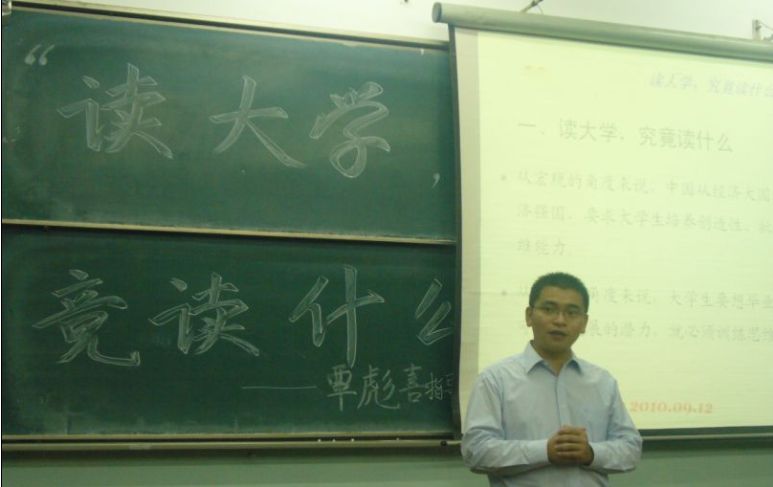 “读大学,
竟读什么
——覃彪喜指
读大学，究竟读什么
一、读大学，究竟读什么
从宏观的角度来说，中国从经济大国
济强国，要求大学生培养创造性、
维能力
从 角度来说，大学生要想毕业
展的潜力，就必须训练思维
2010.09.12